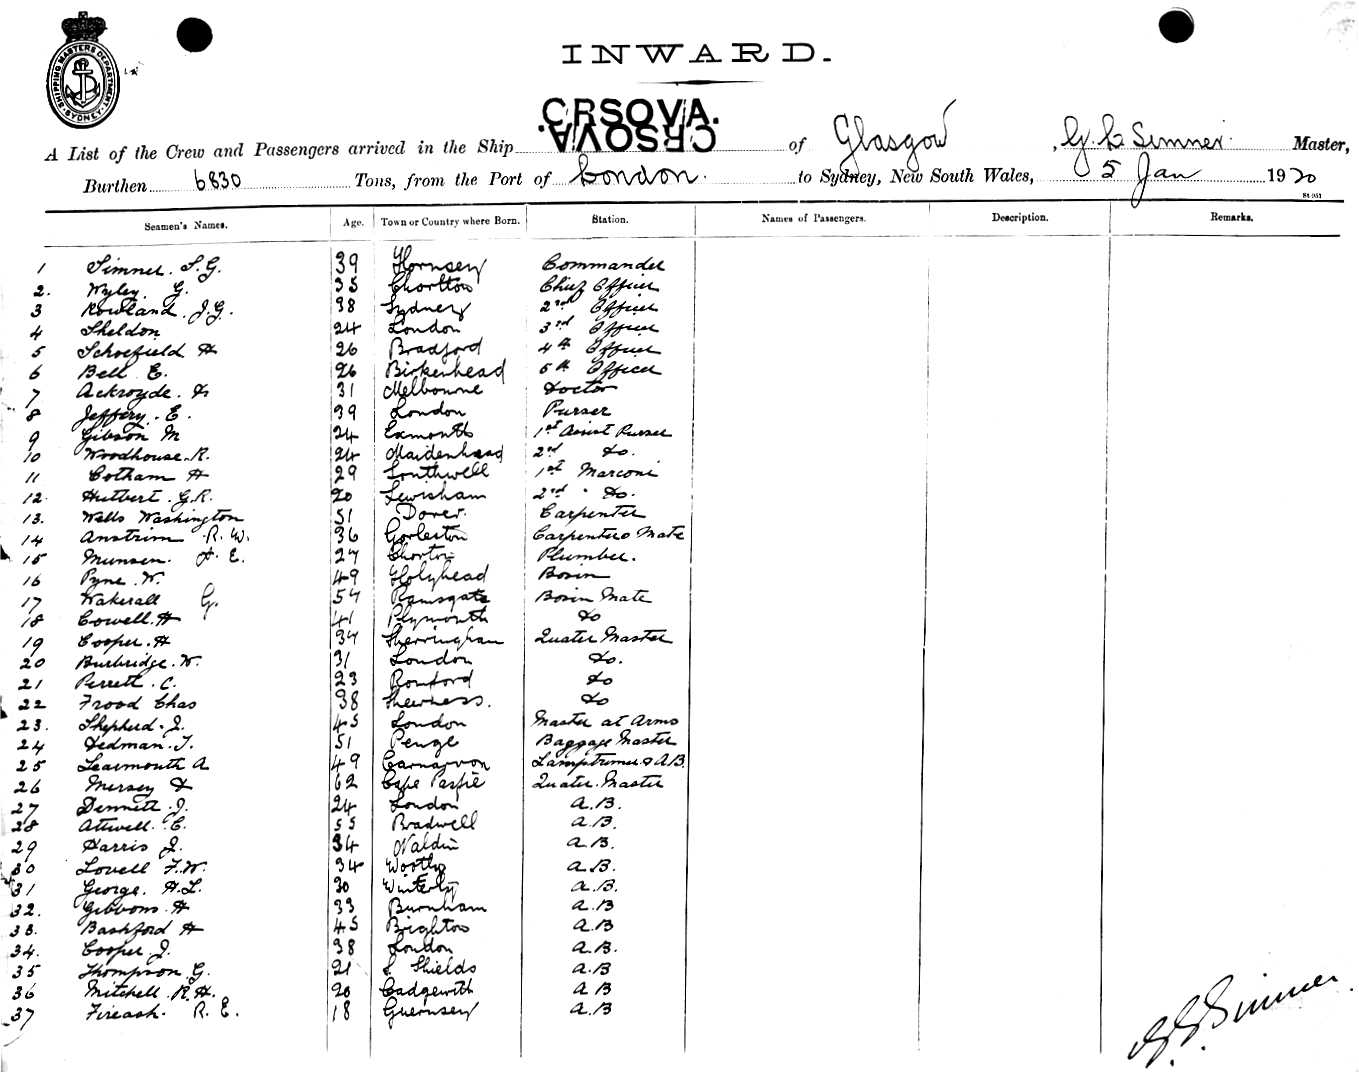 SHIPPING MASTERS DEPARTMENT SYDNEY
INWARD.
CRSOVA.
CRSOVA.
A List of the Crew and Passengers arrived in the Ship of Glasgow, G. Simner Master,
Burthen 6830 Tons, from the Port of London. to Sydney, New South Wales, 5 Jan 1920
St 951
Seamen's Names. Age. Town or Country where Born. Station. Names of Passengers. Description. Remarks.
1 Simner. S. G. 39 Hornsey Commander
2. Wyley. G. 35 Chorlton Chief Officer
3 Rowland. J. G. 38 Sydney 2nd Officer
4 Sheldon 24 London 3rd Officer
5 Schoefield H 26 Bradford 4th Officer
6 Bell E. 26 Birkenhead 5th Officer
7 Ackroyde. H 31 Melbourne Doctor
8 Jeffery. E. 39 London Purser
9 Gibson M 24 Exmouth 1st Assist Purser
10 Woodhouse. R. 24 Maidenhead 2nd do.
11 Cotham H 29 Southwell 1st Marconi
12. Hutbert. G. R. 20 Lewisham 2nd do.
13. Wells Washington 51 Dover. Carpenter
14 Anstrim R. W. 36 Gorleston Carpenters Mate
15 Munsen. H. E. 27 Plumber.
16 Pyne. W. 49 Holyhead Bosin
17 Wakerall G. 54 Ramsgate Bosin Mate
18 Cowell. H 41 Plymouth do
19 Cooper. H 37 Sherringham Quater Master
20 Burbridge. W. 31 London do.
21 Perrett. C. 23 Romford do
22 Frood Chas 38 Sheerness. do
23. Shepherd. J. 45 London Master at Arms
24 Dedman. T. 51 Penge Baggage Master
25 Learmouth A 49 Carnarvon Lamptrimer & A.B.
26 Mersey 62 Cape Quater. Master
27 Dennett. J. 24 London A.B.
28 Attwell. C. 55 Bradwell A.B.
29 Harris J. 34 Naldin A.B.
30 Lovell F. W. 34 A.B.
31 George. H. L. 30 A.B.
32. Gibbons. H 33 Burnham A.B
33. Bashford H 45 Brighton A.B
34. Cooper. J. 38 London A.B.
35 Thompson. G. 21 S. Shields A.B
36 Mitchell. R. H. 20 Cadgewith A B
37 Fireash. R. E. 18 Guernsey A.B
S. G. Simner.